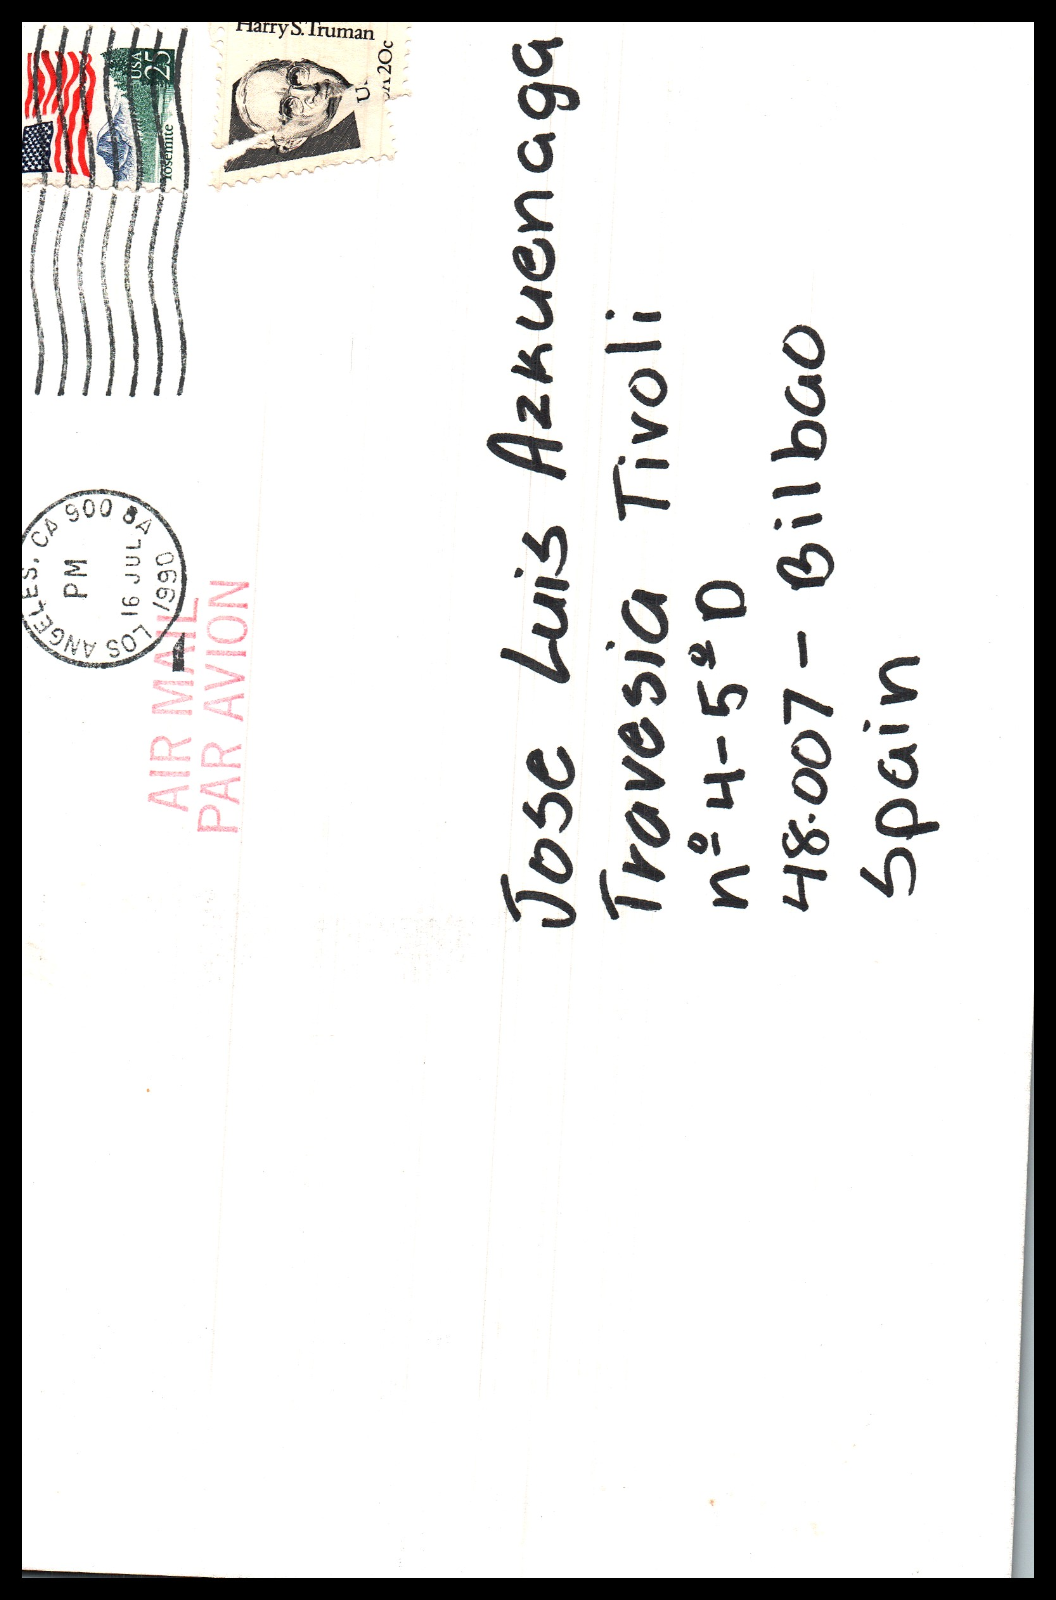 Harry S. Truman
USA 20c
USA
25
Yosemite
LOS ANGELES, CA 900
PM
16 JUL
1990
AIR MAIL
PAR AVION
Jose Luis Azkuenaga
Travesia Tivoli
nº 4-5º D
48.007 - Bilbao
Spain